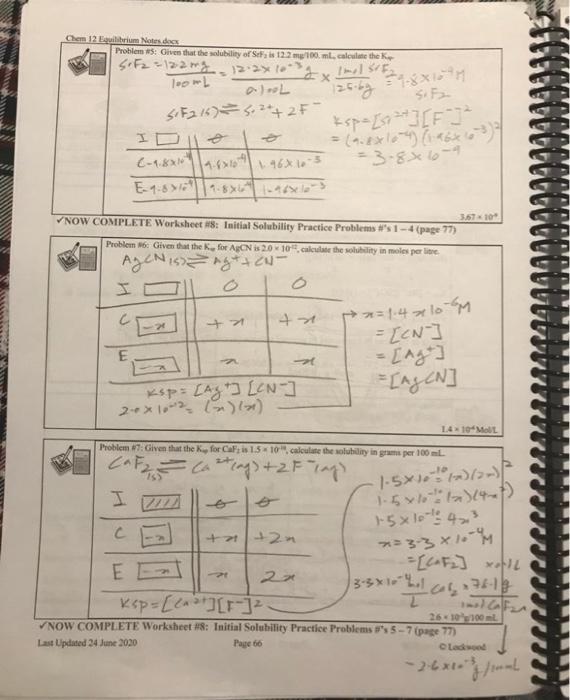 Chem 12 Equilibrium Notes.docx
Problem #5: Given that the solubility of SrF₂ is 12.2 mg/100. mL, calculate the Ksp
SrF2 = 12.2mg / 100mL = 12.2 x 10⁻³ g / 0.100L x 1mol SrF2 / 125.6g = 9.8 x 10⁻⁴ M SrF2
SrF2(s) ⇌ Sr²⁺ + 2F⁻
Ksp = [Sr²⁺][F⁻]²
I
= (9.8x10⁻⁴)(1.96x10⁻³)²
C -9.8x10⁻⁴ 9.8x10⁻⁴ 1.96x10⁻³
= 3.8x10⁻⁹
E -9.8x10⁻⁴ 9.8x10⁻⁴ 1.96x10⁻³
✓NOW COMPLETE Worksheet #8: Initial Solubility Practice Problems #'s 1 – 4 (page 77)
Problem #6: Given that the Ksp for AgCN is 2.0 × 10⁻¹², calculate the solubility in moles per litre.
AgCN(s) ⇌ Ag⁺ + CN⁻
I 0 0
C -x +x +x
x = 1.4 x 10⁻⁶ M
= [CN⁻]
E -x x x
= [Ag⁺]
= [AgCN]
Ksp = [Ag⁺][CN⁻]
2.0 x 10⁻¹² = (x)(x)
Problem #7: Given that the Ksp for CaF₂ is 1.5 × 10⁻¹⁰, calculate the solubility in grams per 100 mL.
CaF2(s) ⇌ Ca²⁺(aq) + 2F⁻(aq)
1.5x10⁻¹⁰ = (x)(2x)²
1.5x10⁻¹⁰ = (x)(4x²)
I
1.5x10⁻¹⁰ = 4x³
C -x +x +2x
x = 3.3 x 10⁻⁴ M
= [CaF2]
E -x x 2x
3.3x10⁻⁴ mol CaF2 / L x 78.1g / 1mol CaF2
Ksp = [Ca²⁺][F⁻]²
✓NOW COMPLETE Worksheet #8: Initial Solubility Practice Problems #'s 5 – 7 (page 77)
Last Updated 24 June 2020 Page 66 © Lockwood